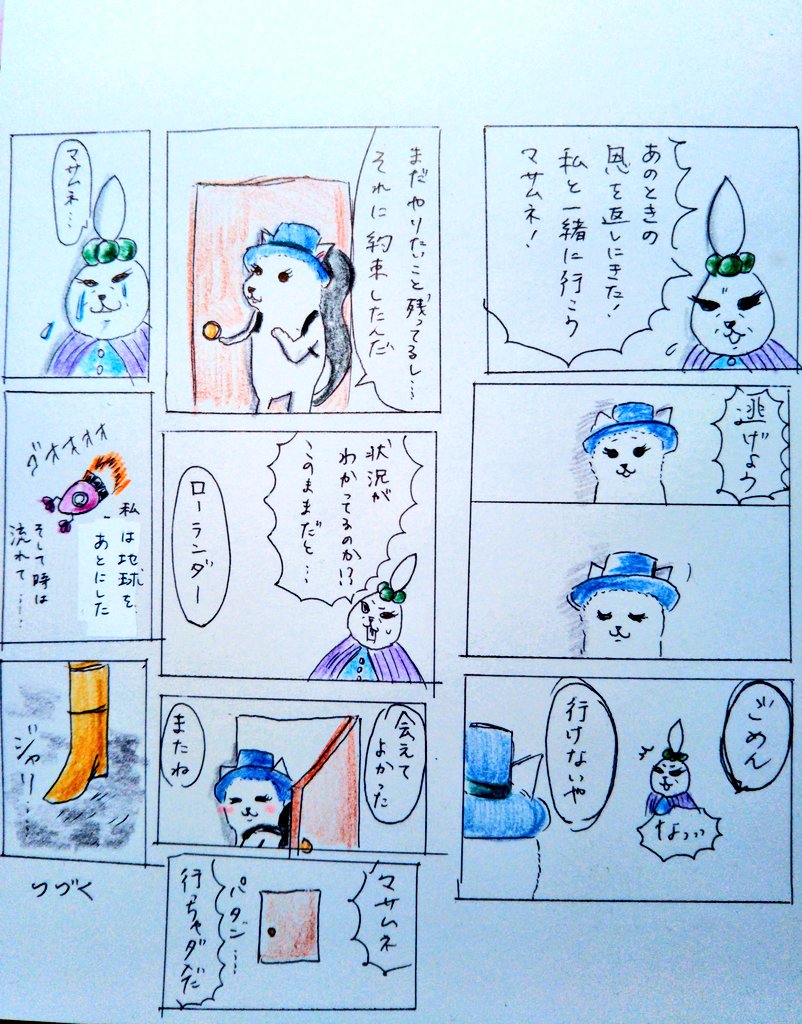 あのときの
恩を返しにきた!
私と一緒に行こう
マサムネ!
逃げよう
ごめん
なっっ
行けないや
まだやりたいこと残ってるし…
それに約束したんだ
状況が
わかってるのか!?
このままだと…
ローランダー
会えて
よかった
またね
マサムネ
パタン…
行っちゃダメだ
マサムネ…
ゴオオオオ
私は地球を
あとにした
そして時は
流れて……
ジャリ…
つづく